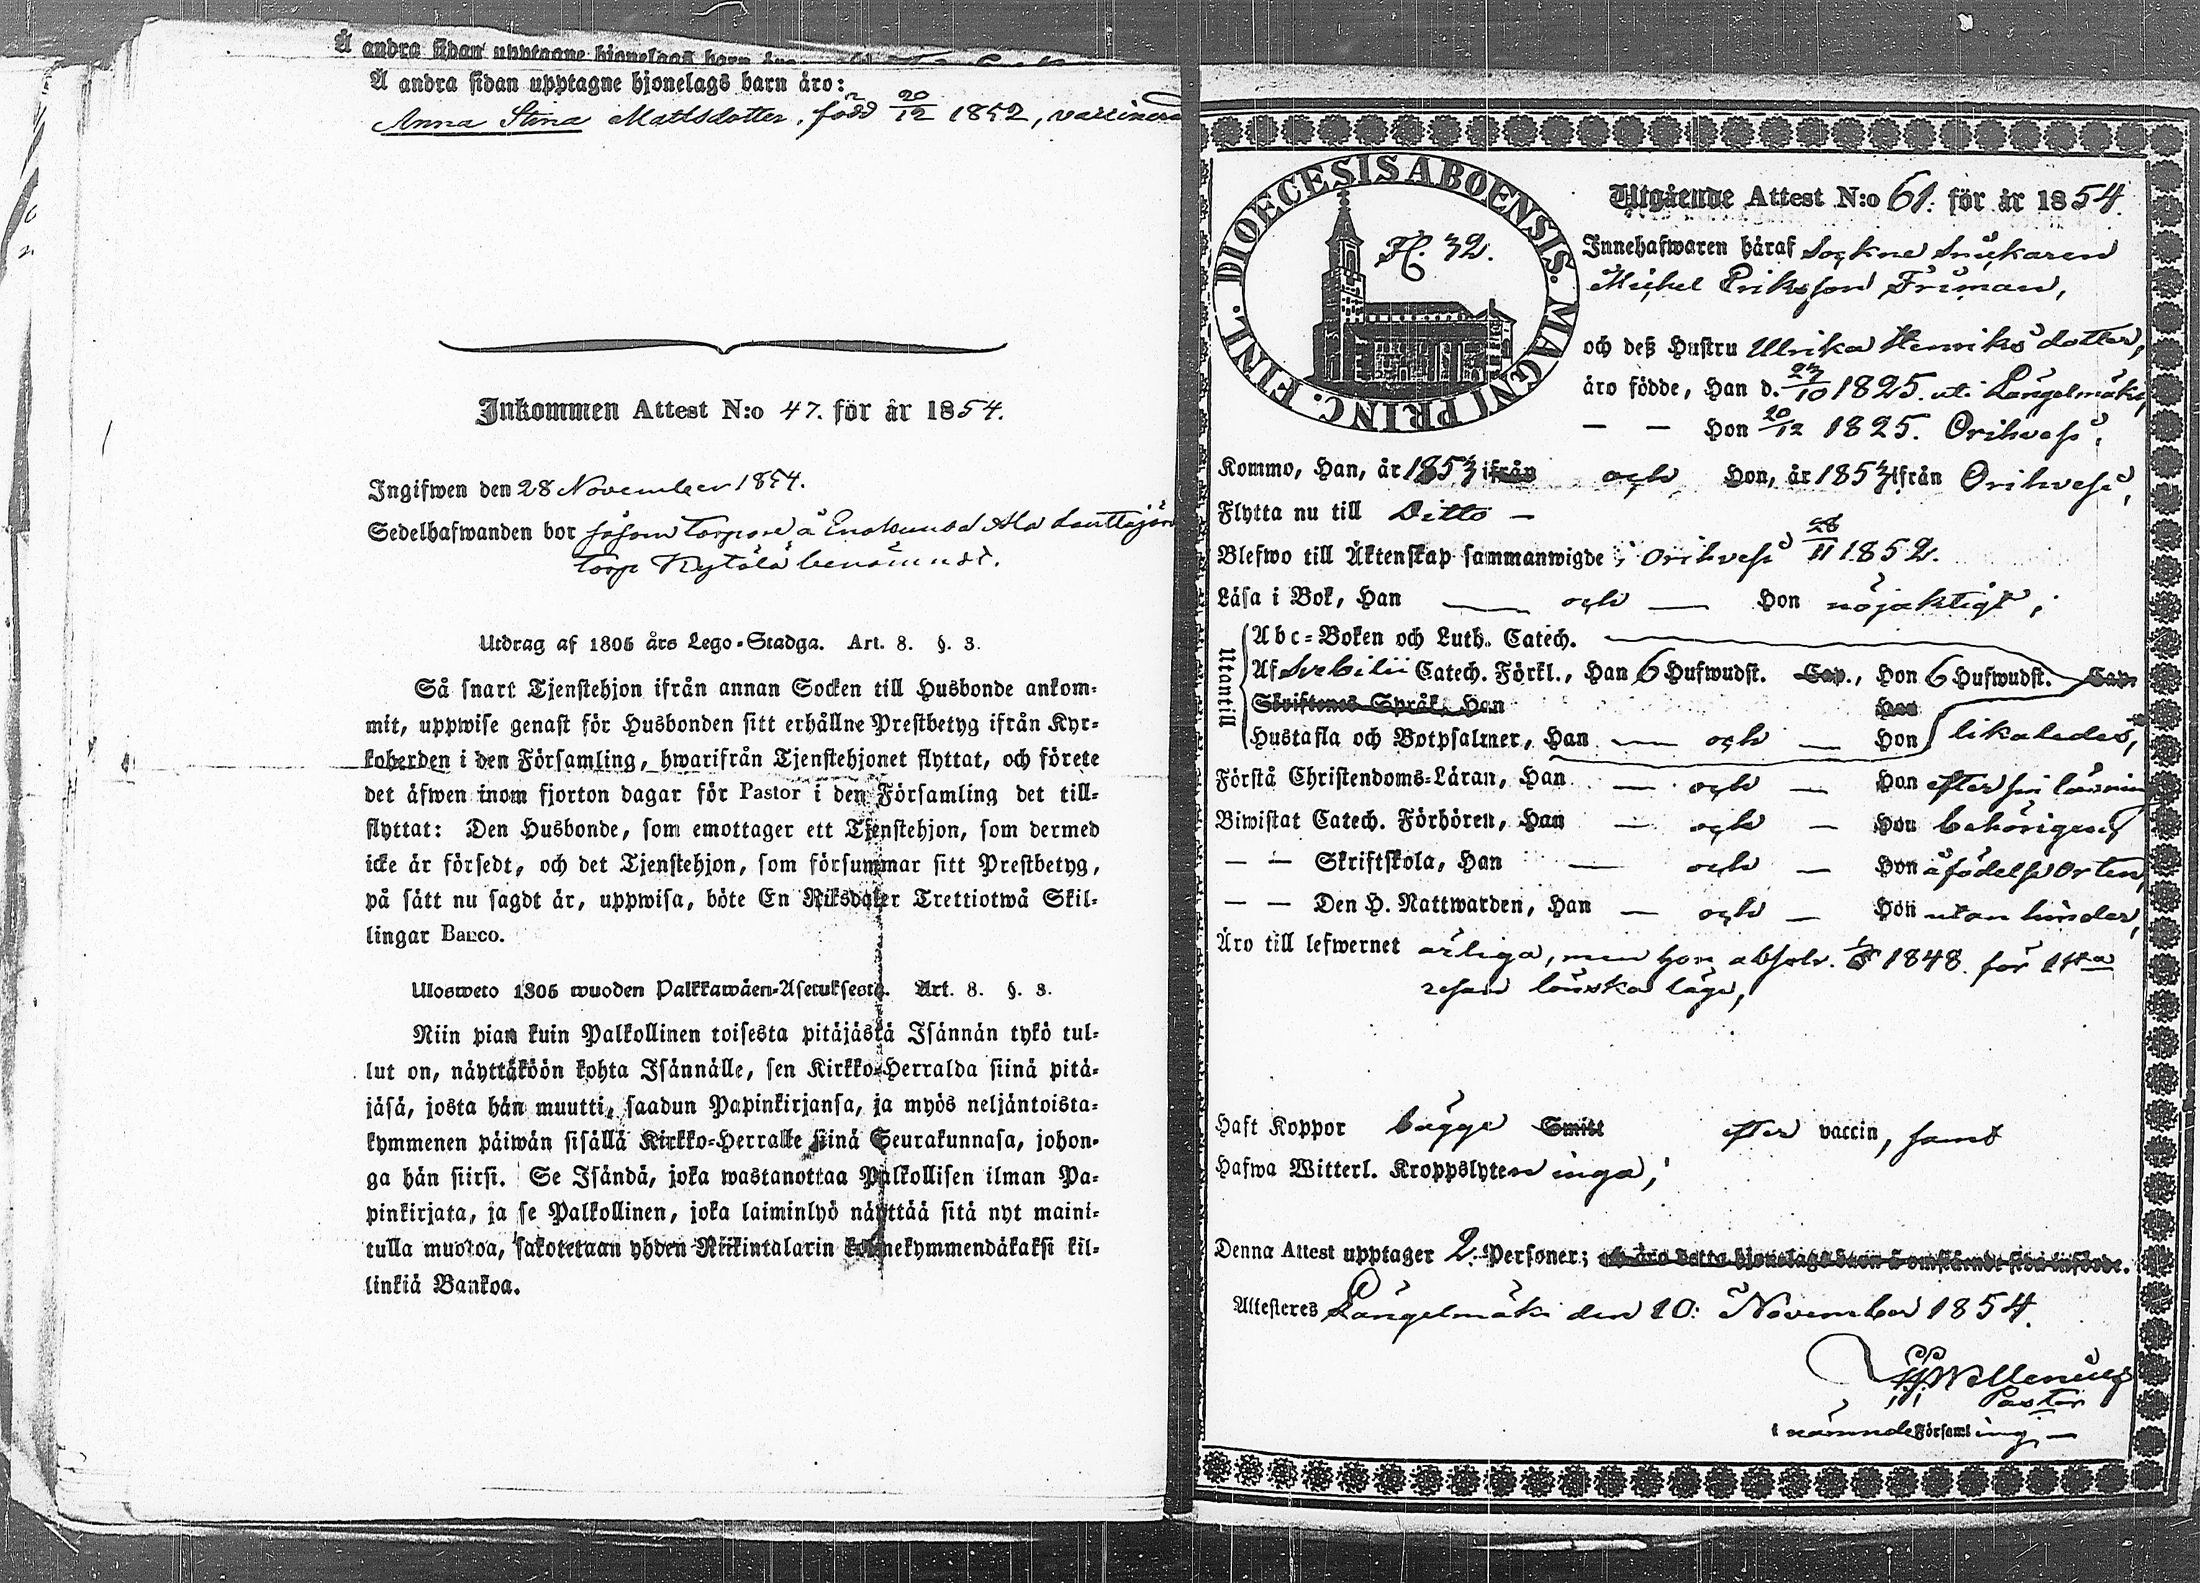 Å andra sidan upptagne hjonelags barn äro:
Å andra sidan upptagne hjonelags barn äro:
Anna Stina Mattsdotter, född 20/12 1852, vaccinerad
Inkommen Attest N:o 47. för år 1854.
Ingifwen den 28 November 1854.
Sedelhafwanden bor såsom torpare å Enokunda Ala Lauttajärvi
torp Kytölä benämndt.
Utdrag af 1805 års Lego-Stadga. Art. 8. §. 3.
Så snart Tjenstehjon ifrån annan Socken till Husbonde ankom-
mit, uppwise genast för Husbonden sitt erhållne Prestbetyg ifrån Kyr-
koherden i den Församling, hwarifrån Tjenstehjonet flyttat, och förete
det äfwen inom fjorton dagar för Pastor i den Församling det till-
flyttat: Den Husbonde, som emottager ett Tjenstehjon, som dermed
icke är försedt, och det Tjenstehjon, som försummar sitt Prestbetyg,
på sätt nu sagdt är, uppwisa, böte En Riksdaler Trettiotwå Skil-
lingar Banco.
Ulosweto 1805 wuoden Palkkawäen-Asetuksesta. Art. 8. §. 3.
Niin pian kuin Palkollinen toisesta pitäjästä Isännän tykö tul-
lut on, näyttäköön kohta Isännälle, sen Kirkko-Herralda siinä pitä-
jäsä, josta hän muutti, saadun Papinkirjansa, ja myös neljäntoista-
kymmenen päiwän sisällä Kirkko-Herralle siinä Seurakunnasa, johon-
ga hän siirsi. Se Isändä, joka wastanottaa Palkollisen ilman Pa-
pinkirjata, ja se Palkollinen, joka laiminlyö näyttää sitä nyt maini-
tulla muotoa, sakotetaan yhden Riikintalarin kolmekymmendäkaksi kil-
linkiä Bankoa.
DIOECESIS ABOENSIS. MAGNI PRINC. FINL.
H. 32.
Utgående Attest N:o 61. för år 1854.
Innehafwaren häraf Sockne Snickaren
Michel Eriksson Friman,
och deß Hustru Ulrika Henriksdotter,
äro födde, Han d. 27/10 1825. uti Längelmäki,
— — Hon 20/12 1825. Orihvesi,
Kommo, Han, år 1853 ifrån och Hon, år 1853 ifrån Orihvesi,
Flytta nu till Ditto —
Blefwo till Äktenskap sammanwigde i Orihvesi 28/11 1852.
Läsa i Bok, Han — och — Hon nöjaktigt,
Utantill
Abc-Boken och Luth. Catech.
Af Svebilii Catech. Förkl., Han 6 Hufwudst. Cap., Hon 6 Hufwudst. Cap.
Skriftenes Språk, Han Hon
Hustafla och Botpsalmer, Han — och — Hon likaledes,
Förstå Christendoms-Läran, Han — och — Hon efter sin läsning
Biwistat Catech. Förhören, Han — och — Hon behörigen,
— — Skriftskola, Han — och — Hon å födelse Orten,
— — Den H. Nattwarden, Han — och — Hon utan hinder,
Äro till lefwernet ärliga, men hon absolv. 1848. för 1sta
resan lönska läge,
Haft Koppor bägge Smitt efter vaccin, samt
Hafwa Witterl. Kroppslyten inga,
Denna Attest upptager 2. Personer; och äro detta hjonelags barn å omstående sida införde.
Attesteres Längelmäki den 10: November 1854.
Pastor
i nämnde Församling, —